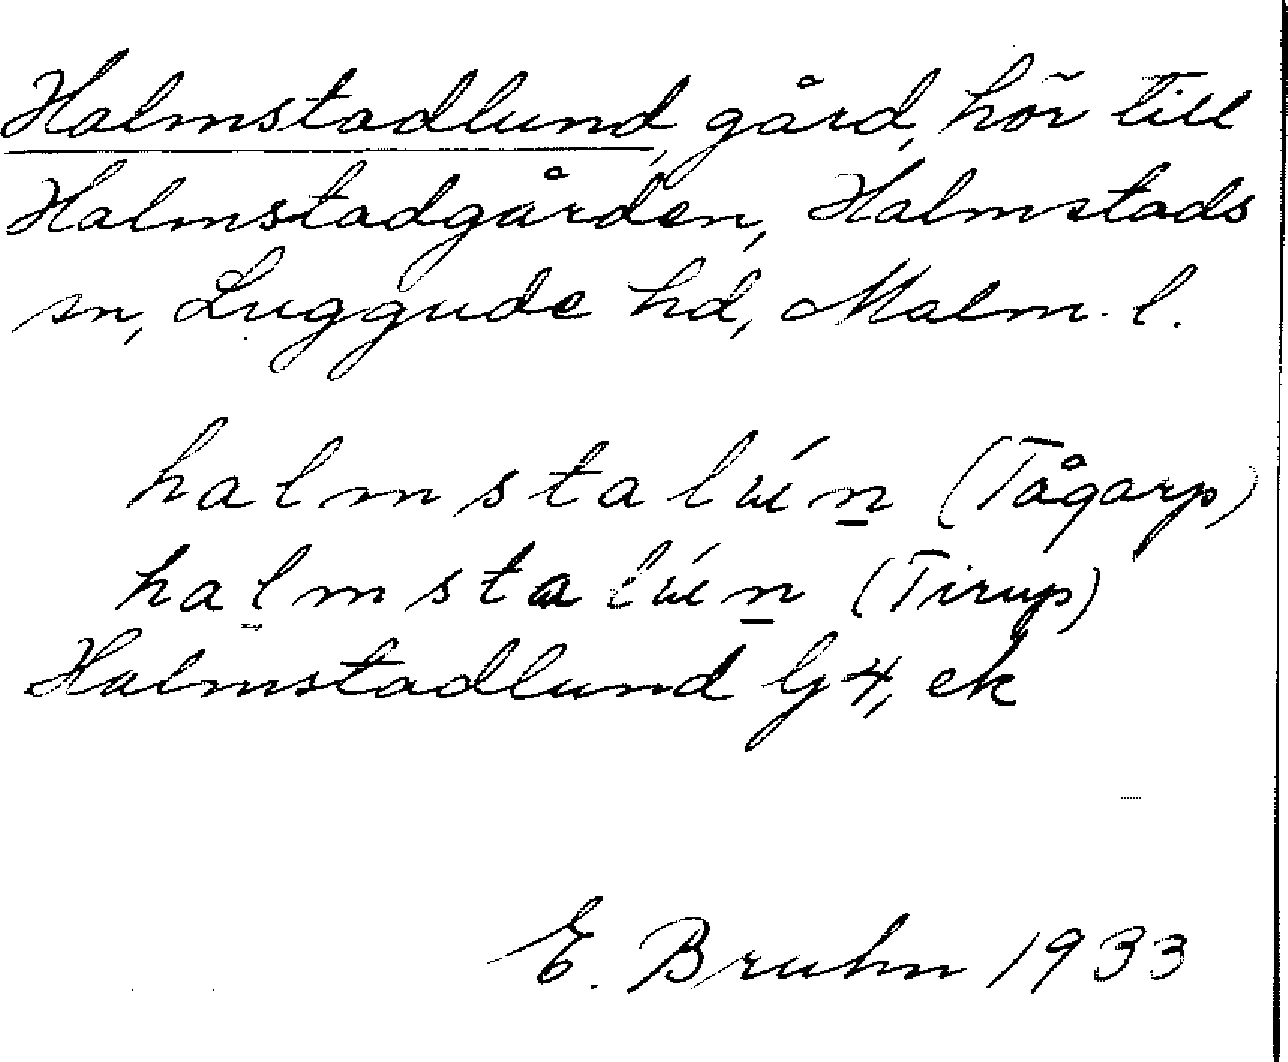 Halmstadlund, gård, hör till
Halmstadgården, Halmstads
sn, Luggude hd, Malm. l.
halmstalún̲ (Tågarp)
hal̲mstalún̲ (Tirup)
Halmstadlund G4, ek
E. Bruhn 1933